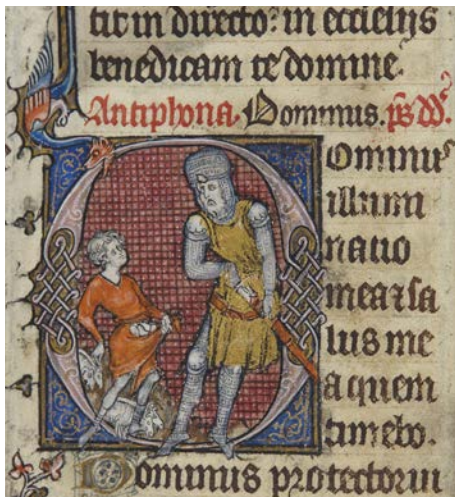 tit in directo: in ecclesijs
benedicam te domine.
Antiphona. Dominus. ps dd.
Dominus
illumi
natio
mea ⁊ sa
lus me
a quem
timebo.
Dominus protector ui